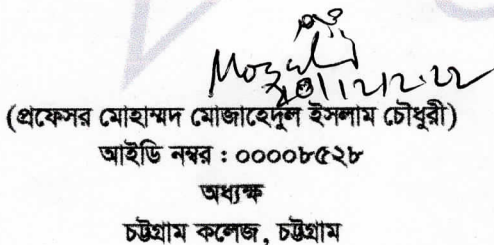 (প্রফেসর মোহাম্মদ মোজাহেদুল ইসলাম চৌধুরী)
আইডি নম্বর : ০০০০৮৫২৮
অধ্যক্ষ
চট্টগ্রাম কলেজ, চট্টগ্রাম